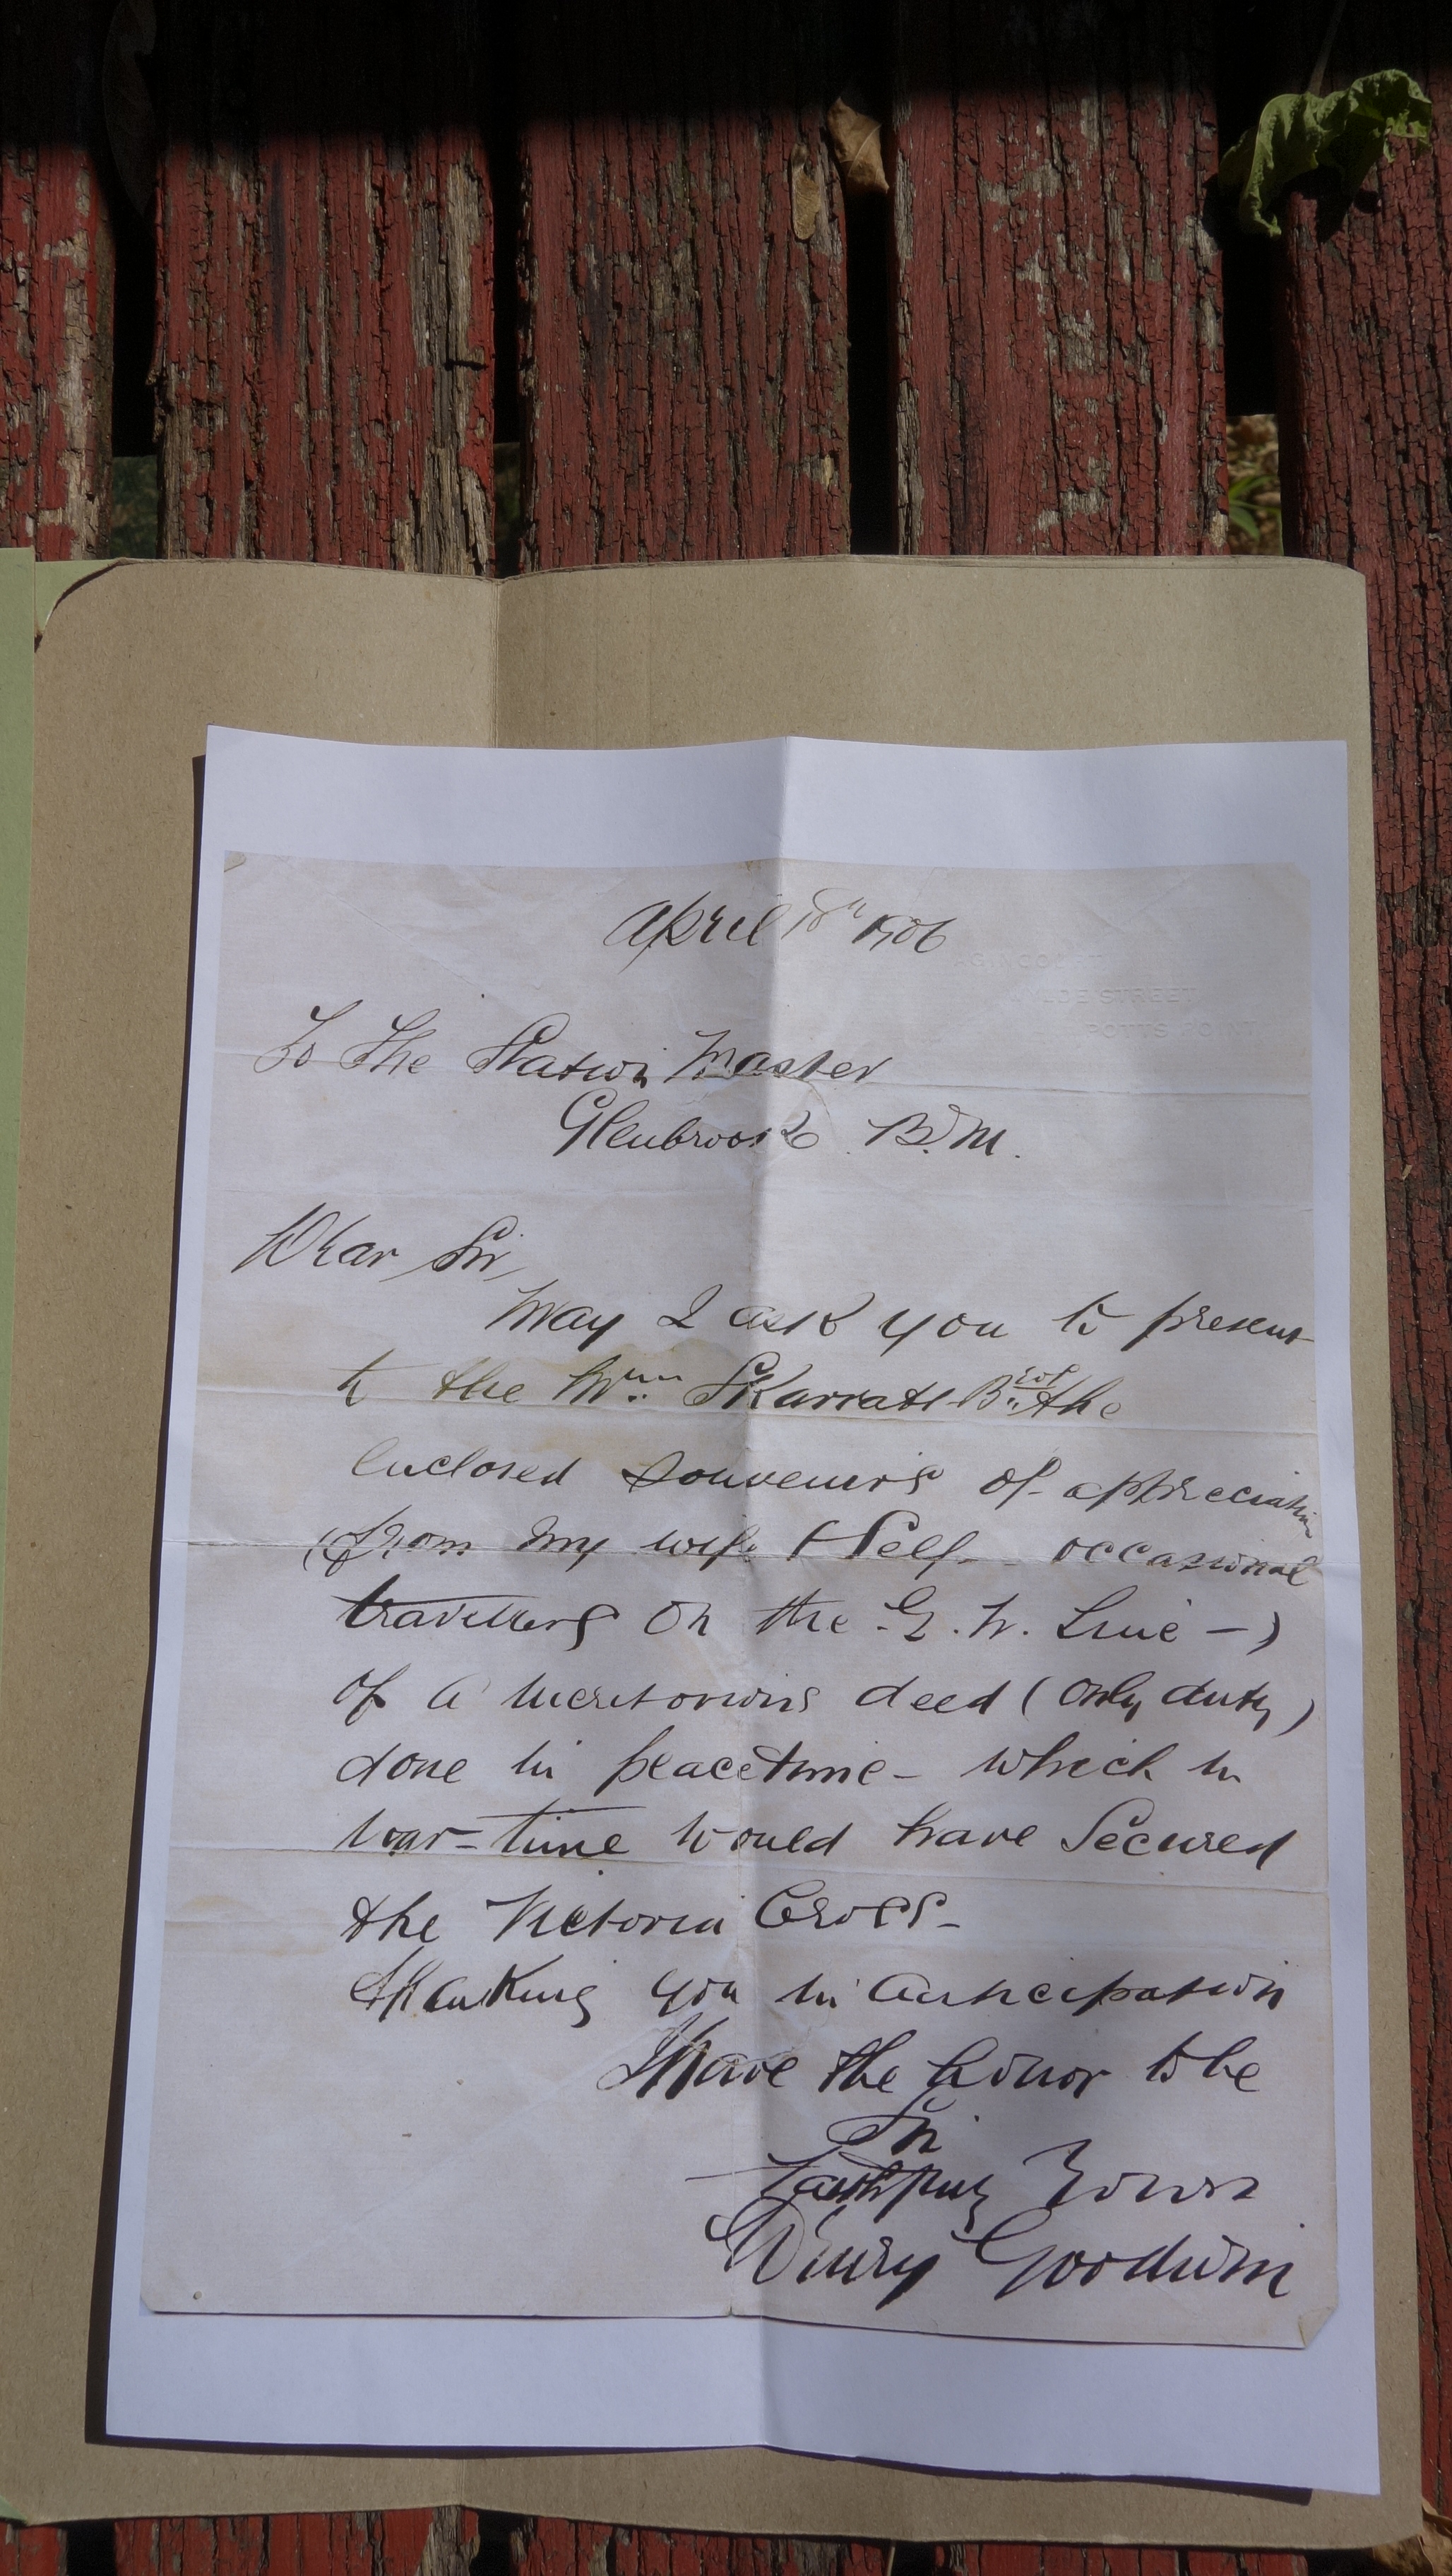 April 18th 1906
AGINCOURT
STREET
POTTS POINT
To The Station Master
Glenbrook. B.M.
Dear Sir,
May I ask you to present
to the Skarratt the
enclosed souvenirs of appreciation
(from my wife & self - occasional
travellers on the G.W. Line -)
of a meritorious deed (only duty)
done in peacetime - which in
war-time would have secured
the Victoria Cross -
Thanking you in anticipation
I have the honor to be
Sir
Faithfully Yours
Henry Goodwin